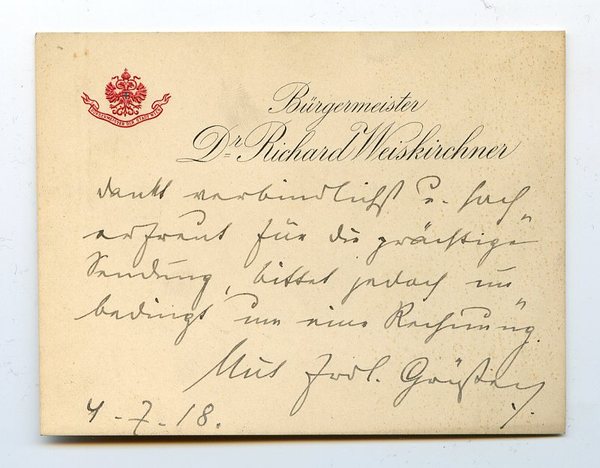 BÜRGERMEISTER DER STADT WIEN
Bürgermeister
Dr. Richard Weiskirchner
dankt verbindlichst u. hoch
erfreut für die prächtige
Sendung, bittet jedoch un
bedingt um eine Rechnung.
Mit frdl. Grüßen
4-7-18.